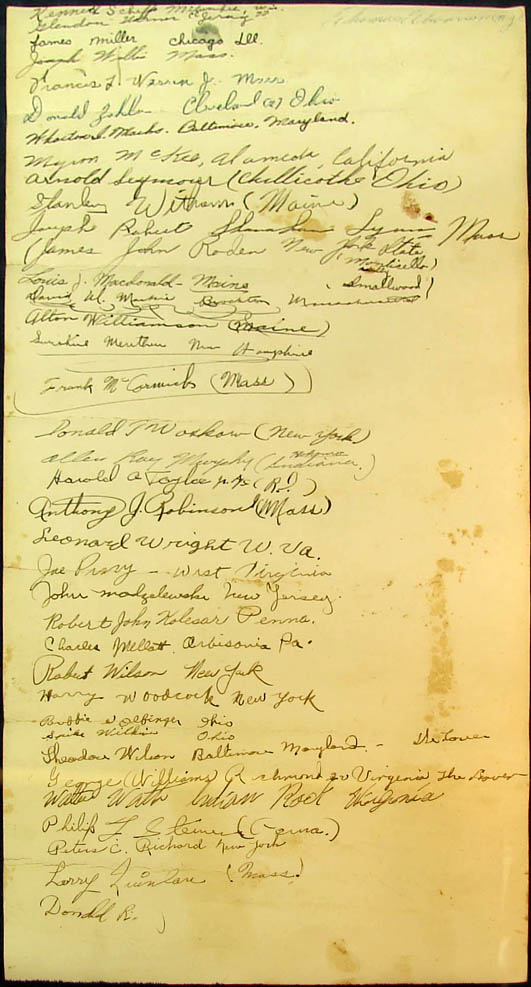 Kenneth Schiff Milwaukee, Wis.
Glendon Jersey
James Miller Chicago Ill.
Joseph Willis Mass.
Francis L. Warren Jr. Mass.
Donald Cleveland Ohio
Baltimore, Maryland.
Myron McKee, Alameda, California
Arnold Seymour (Chillicothe Ohio)
Stanley Witham (Maine)
Joseph Robert Shanahan Lynn Mass
(James John Roden New York State
(Monticello)
Smallwood)
Louis J. Macdonald - Maine
David W.
Alton Williamson (Maine)
Sunshine New Hampshire
Frank McCormick (Mass)
Donald T Woskow (New York)
Allen Ray Murphy (Indiana)
Harold A Taylor Jr. (R.I.)
Anthony J. Robinson (Mass)
Leonard Wright W. Va.
Joe - West Virginia
John New Jersey.
Robert John Kolesar Penna.
Charles Mellott, Orbisonia Pa.
Robert Wilson New York
Harry Woodcock New York
Ohio
Ohio
Theodore Wilson Baltimore Maryland - The Lover
George (Williams) Richmond 20 Virginia The Lover
Walter Indian Rock Virginia
Philip F (Penna.)
Peter C. Richard New York
Larry Quinlan (Mass.)
Donald R.